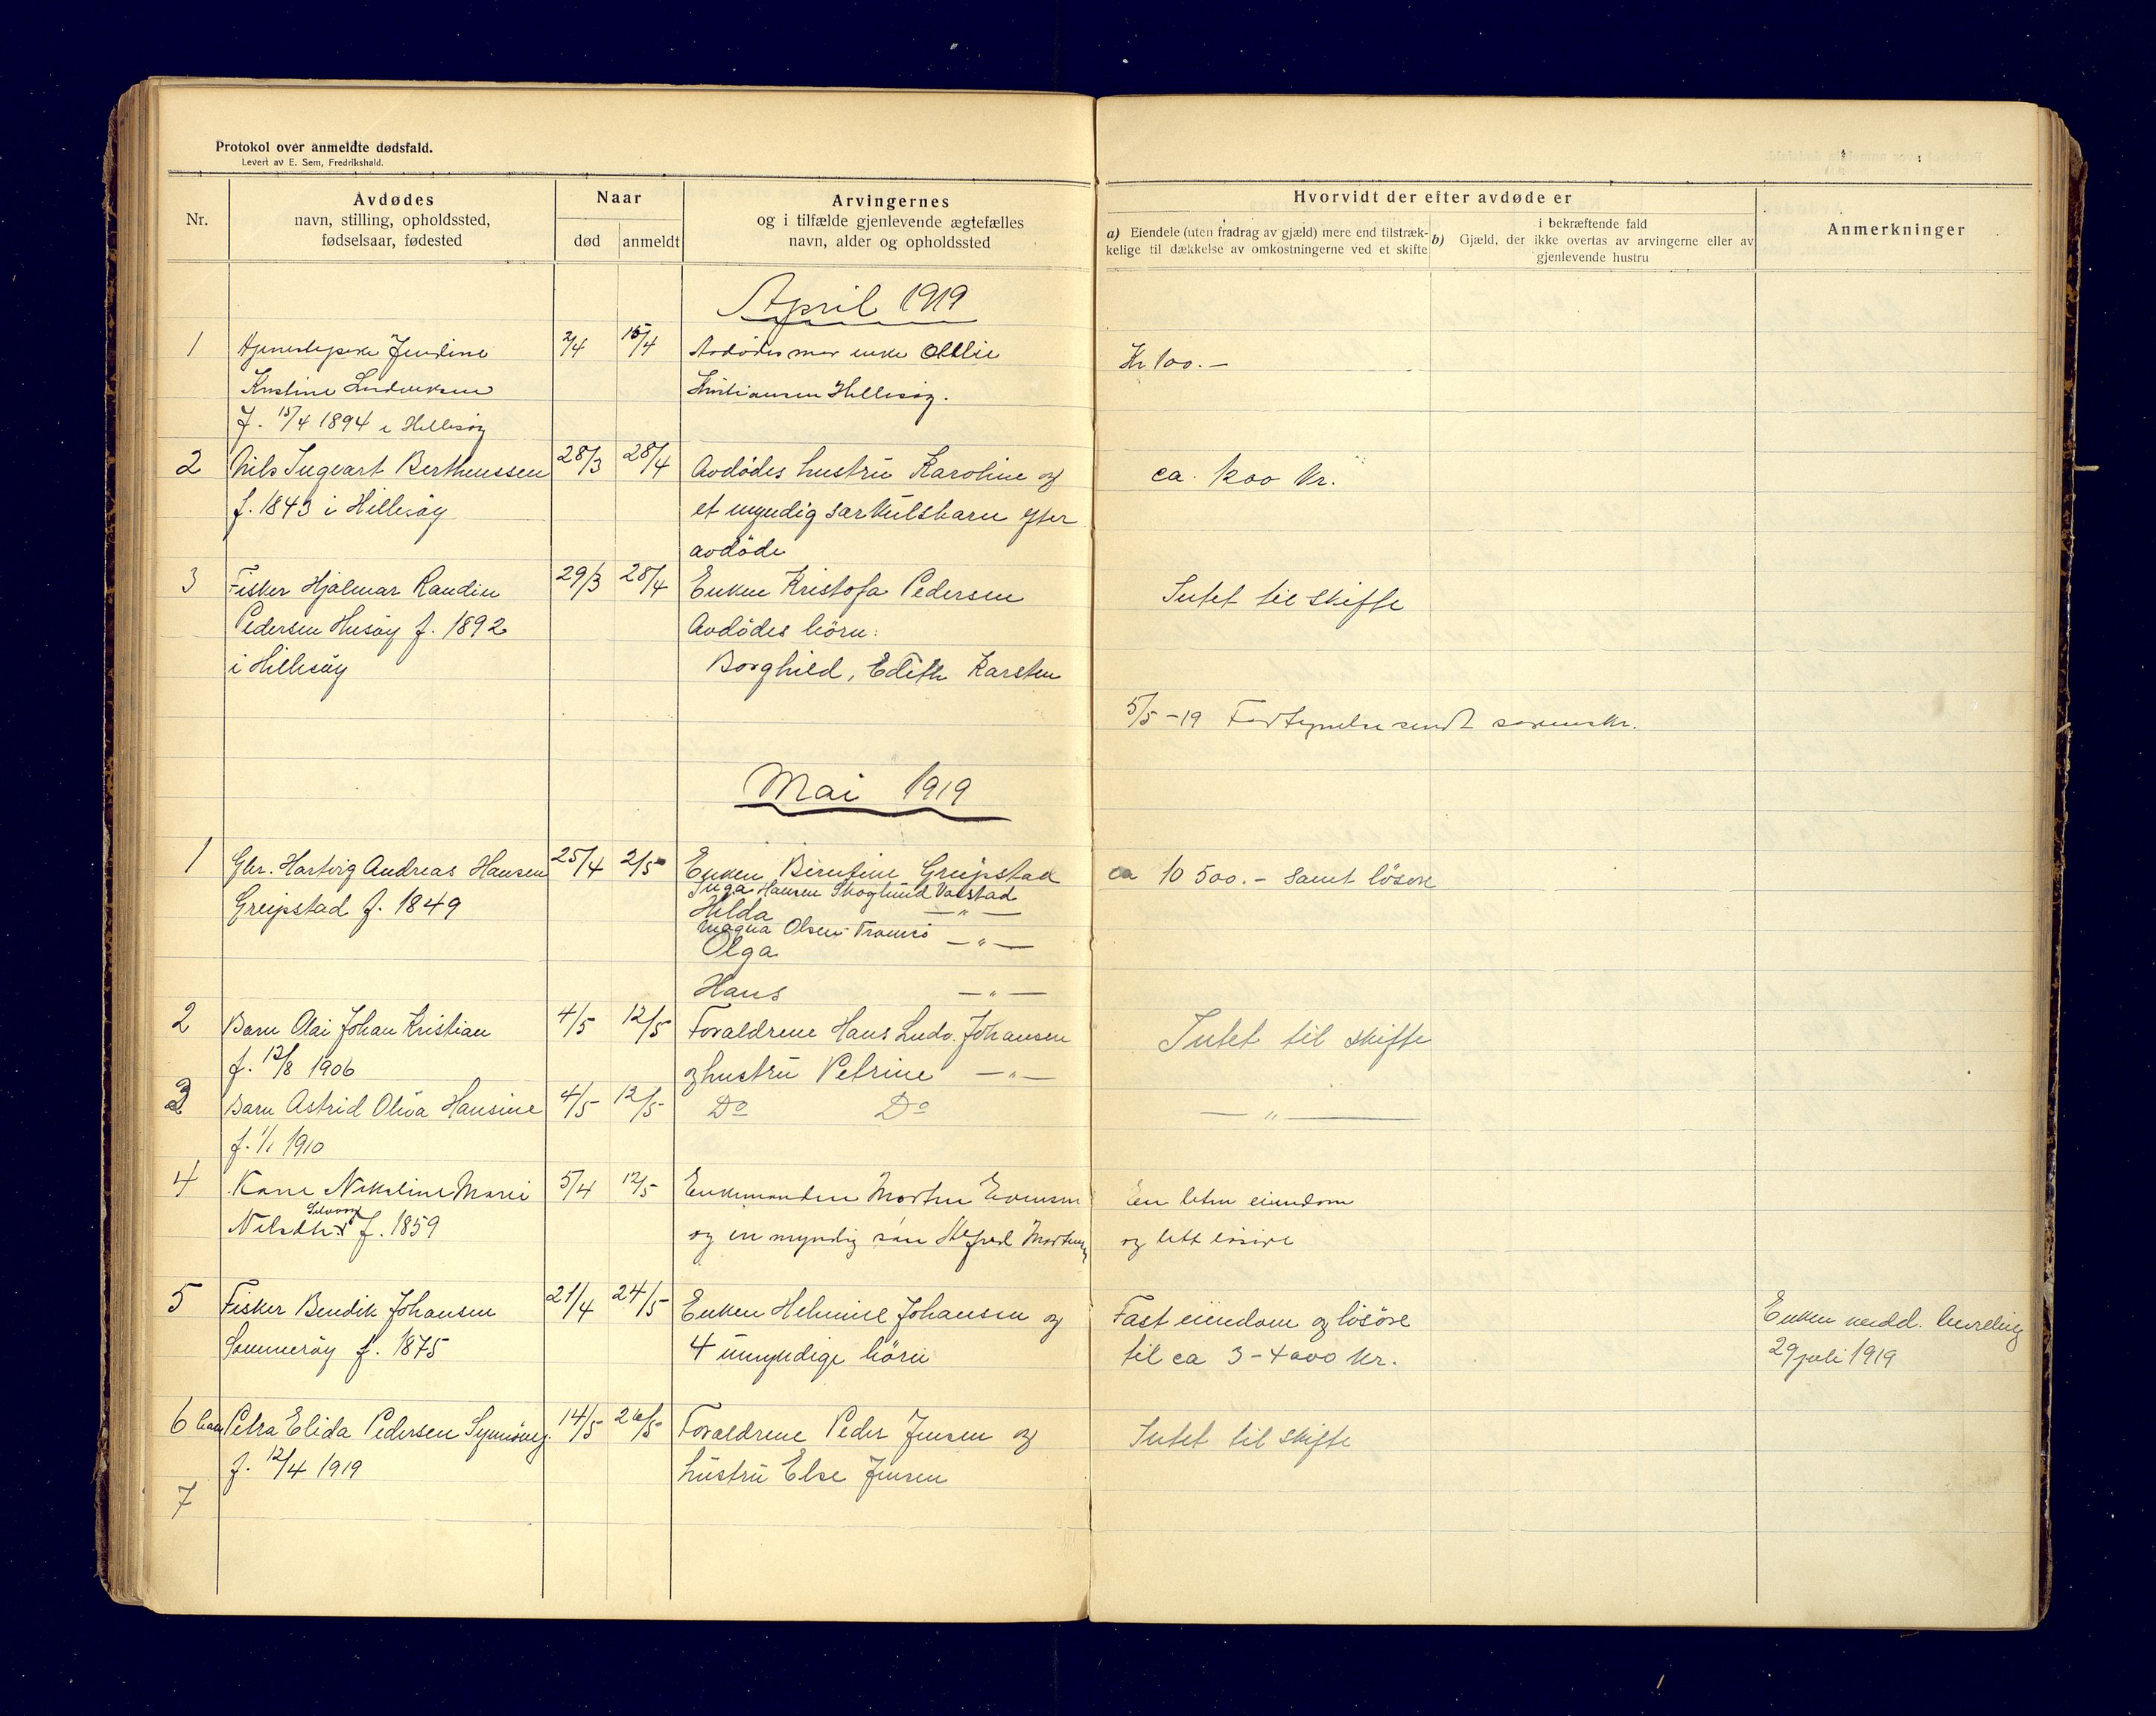 Protokol over anmeldte dødsfald.
Levert av E. Sem, Fredrikshald.
Nr.
Avdødes
navn, stilling, opholdssted,
fødselsaar, fødested
Naar
død
anmeldt
Arvingernes
og i tilfælde gjenlevende ægtefælles
navn, alder og opholdssted
Hvorvidt der efter avdøde er
a) Eiendele (uten fradrag av gjæld) mere end tilstræk-
kelige til dækkelse av omkostningerne ved et skifte
i bekræftende fald
b) Gjæld, der ikke overtas av arvingerne eller av
gjenlevende hustru
Anmerkninger
April 1919
1 Jendine 2/4 15/4 Avdødes mor enke Ottilie Kr 100.-
Kristine Ludviksen Kristiansen Hillesøy.
f. 15/4 1894 i Hillesøy
2 Nils Ingvart Bertheussen 28/3 28/4 Avdødes hustru Karoline og ca. 1200 kr.
f. 1843 i Hillesøy et myndig særkulsbarn efter
avdøde
3 Fisker Hjalmar Randin 29/3 28/4 Enken Kristofa Pedersen Intet til skifte
Pedersen Husøy f. 1892 Avdødes börn:
i Hillesöy Borghild, Edith Karsten
5/5-19 Fortegnelse sendt sorenskr.
Mai 1919
1 Gbr. Hartvig Andreas Hansen 25/4 2/5 Enken Berntine Greipstad ca 10 500.- samt løsøre
Inga Hansen Skoglund Valstad
Greipstad f. 1849 Hilda -"-
Magna Olsen Tromsö
Olga -"-
Hans -"-
2 Barn Olai Johan Kristian 4/5 12/5 Foraldrene Hans Ludv. Johansen Intet til skifte
f. 12/8 1906 og hustru Petrine -"-
3 Barn Astrid Oliva Hansine 4/5 12/5 Do Do -"-
f. 1/1 1910
4 Kone Nekoline Marie 5/4 12/5 Enkemanden Morten Evensen En liten eiendom
f. 1859 og en myndig søn Alfred Mortensen og litt løsøre
5 Fisker Bendik Johansen 21/4 24/5 Enken Helmine Johansen og Fast eiendom og løsöre Enken medd. bevilling
Sommeröy f. 1875 4 umyndige börn til ca 3-4000 kr. 29 juli 1919
6 barn Petra Elida Pedersen 14/5 26/5 Foraldrene Peder Jensen og Intet til skifte
f. 12/4 1919 hustru Else Jensen
7